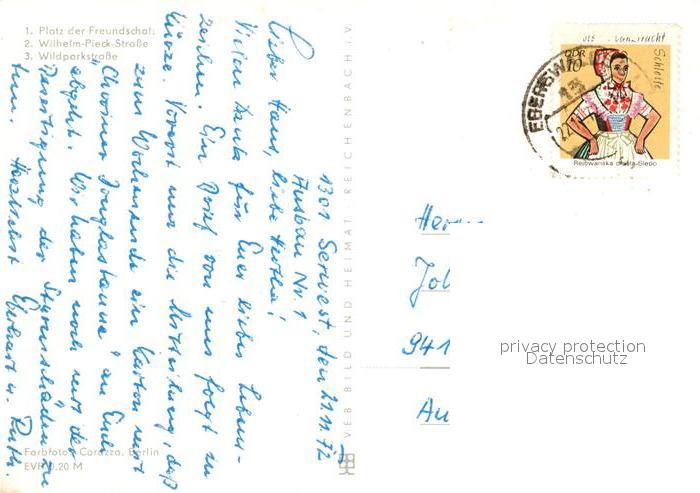 1. Platz der Freundschaft
2. Wilhelm-Pieck-Straße
3. Wildparkstraße
1301 Serwest, den 21.11.72
Ausbau Nr. 1
Lieber Hans, liebe Hertha!
Vielen Dank für Euer liebes Lebens-
zeichen. Ein Brief von uns folgt in
Kürze. Vorerst nur die Mitteilung, daß
zum Wochenende ein Karton mit
"Choriner Douglastanne" an Euch
abgeht. Wir haben noch mit der
Beseitigung der Sturmschäden zu
tun. Herzlichst Eberhard u. Ruth.
Farbfoto: Corazza, Berlin
EVP 0,20 M
VEB BILD UND HEIMAT REICHENBACH i.V.
DDR
10
Schleife
Rejtwańska drasta-Slepo
EBERSW
Her
Joh
941
Au
privacy protection
Datenschutz